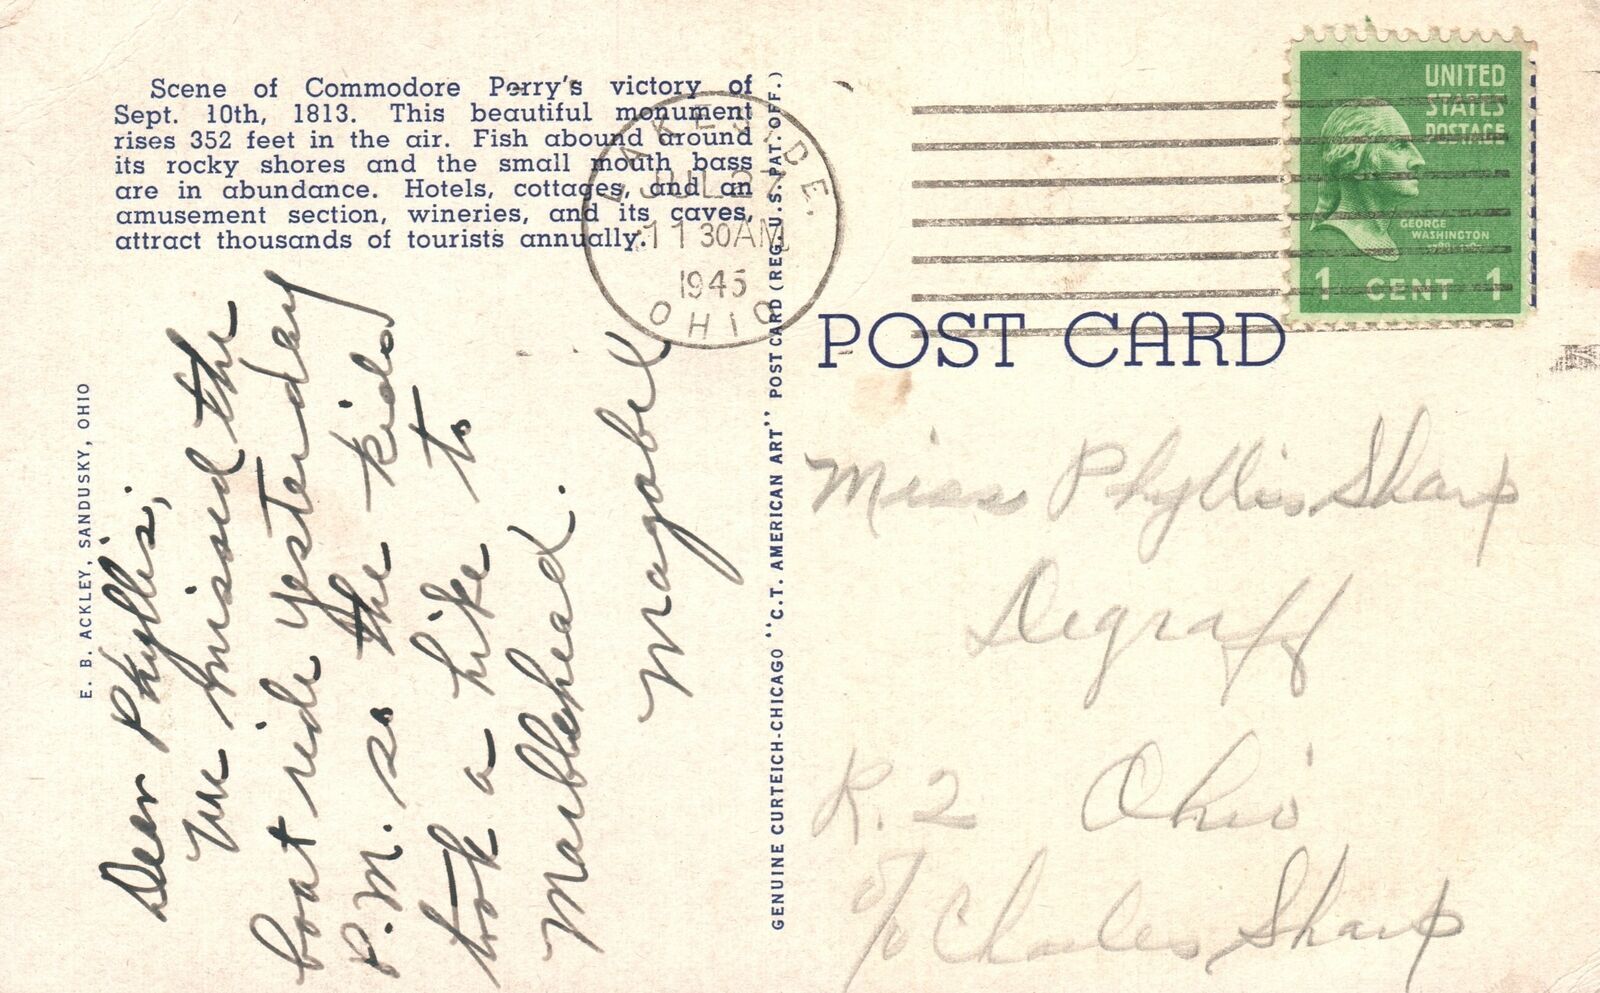 Scene of Commodore Perry's victory of
Sept. 10th, 1813. This beautiful monument
rises 352 feet in the air. Fish abound around
its rocky shores and the small mouth bass
are in abundance. Hotels, cottages, and an
amusement section, wineries, and its caves,
attract thousands of tourists annually.
LAKESIDE.
JUL 27
11 30 AM
1945
OHIO
UNITED
STATES
POSTAGE
GEORGE
WASHINGTON
1789-1797
1 CENT 1
POST CARD
E. B. ACKLEY, SANDUSKY, OHIO
Dear Phyllis,
We missed the
boat ride yesterday
P.M. so the kids
took a hike to
Marblehead.
Magabell
GENUINE CURTEICH-CHICAGO "C.T. AMERICAN ART" POST CARD (REG. U.S. PAT. OFF.)
Miss Phyllis Sharp
Degraff
R. 2 Ohio
c/o Charles Sharp